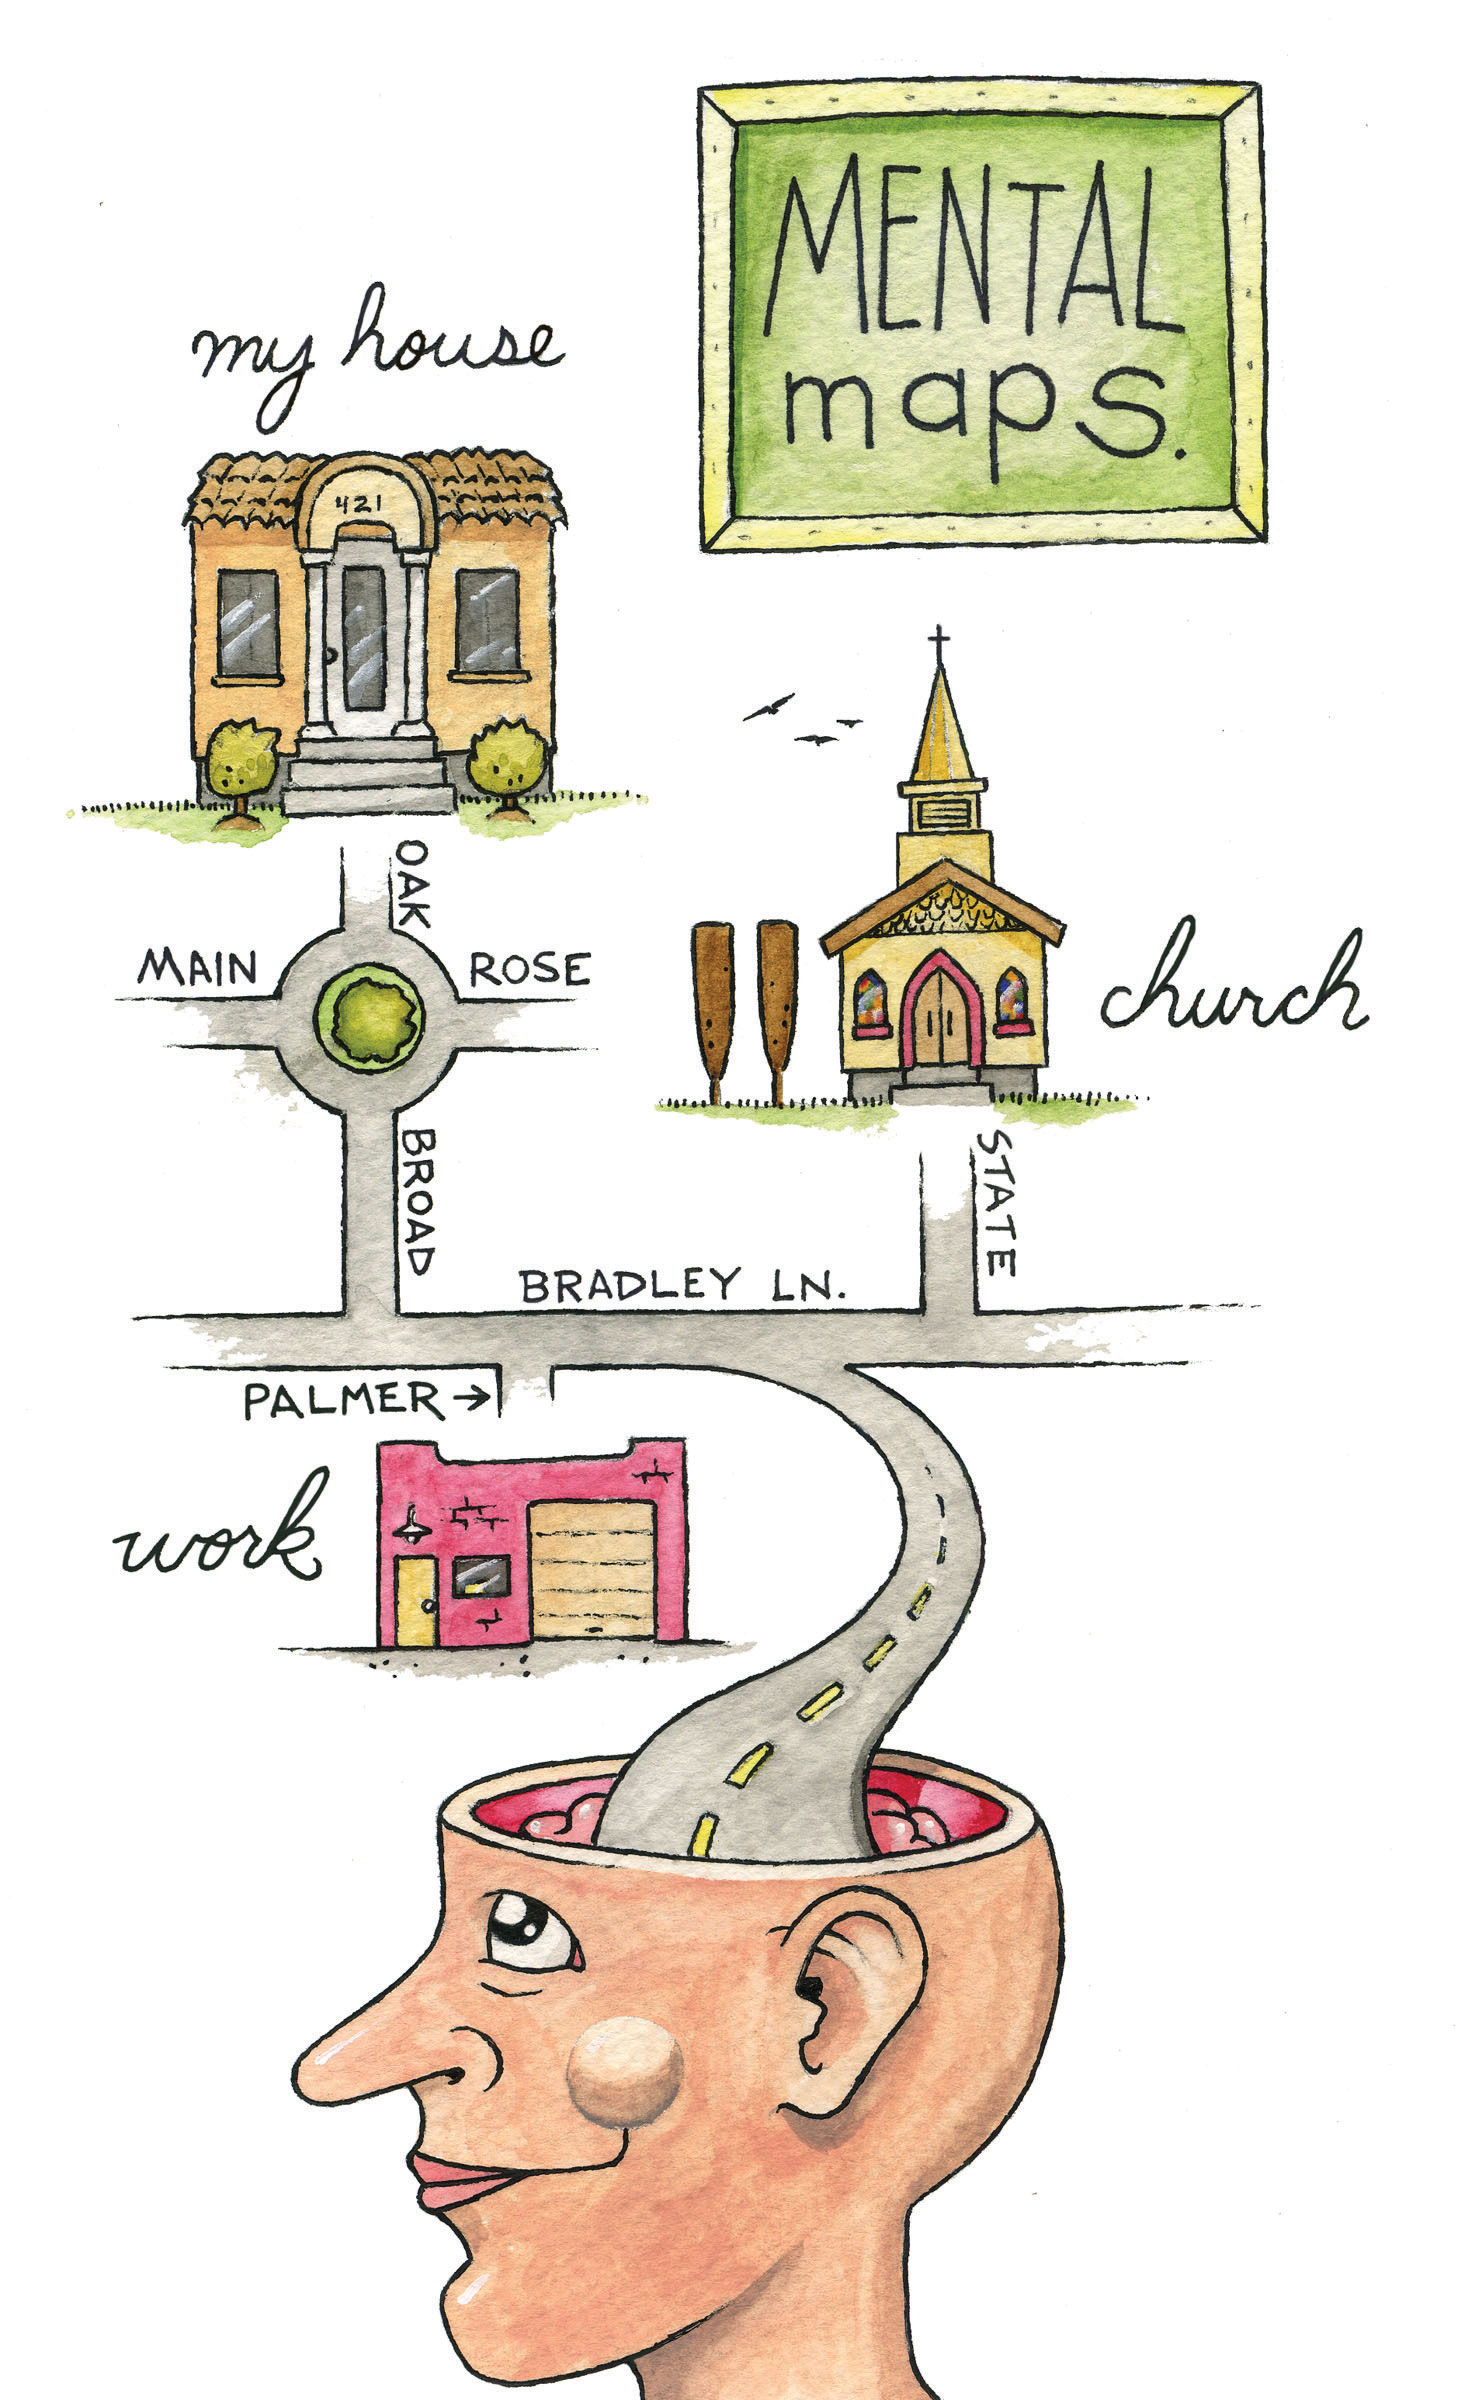 MENTAL
maps.
my house
421
OAK
MAIN
ROSE
church
BROAD
STATE
BRADLEY LN.
PALMER →
work